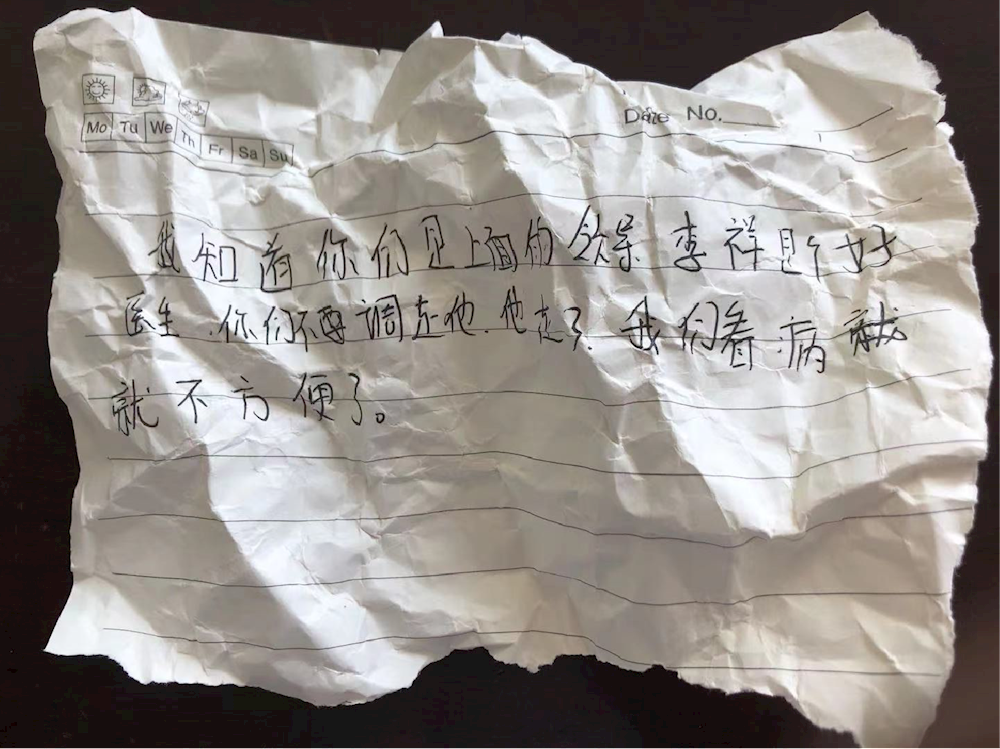 Date No.
Mo Tu We Th Fr Sa Su
我知道你们是上面的领导李祥是个好
医生.你们不要调走他.他走了.我们看病就
就不方便了。